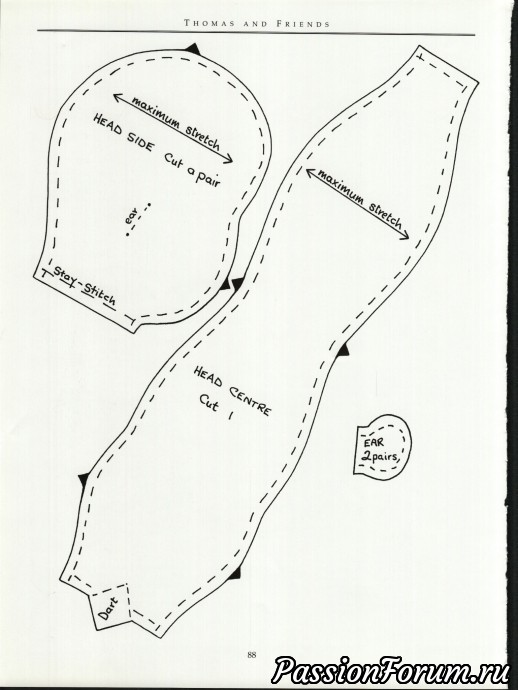 THOMAS AND FRIENDS
maximum stretch
HEAD SIDE Cut a pair
ear
Stay-Stitch
maximum stretch
HEAD CENTRE
Cut 1
EAR
2 pairs,
Dart
88
PassionForum.ru